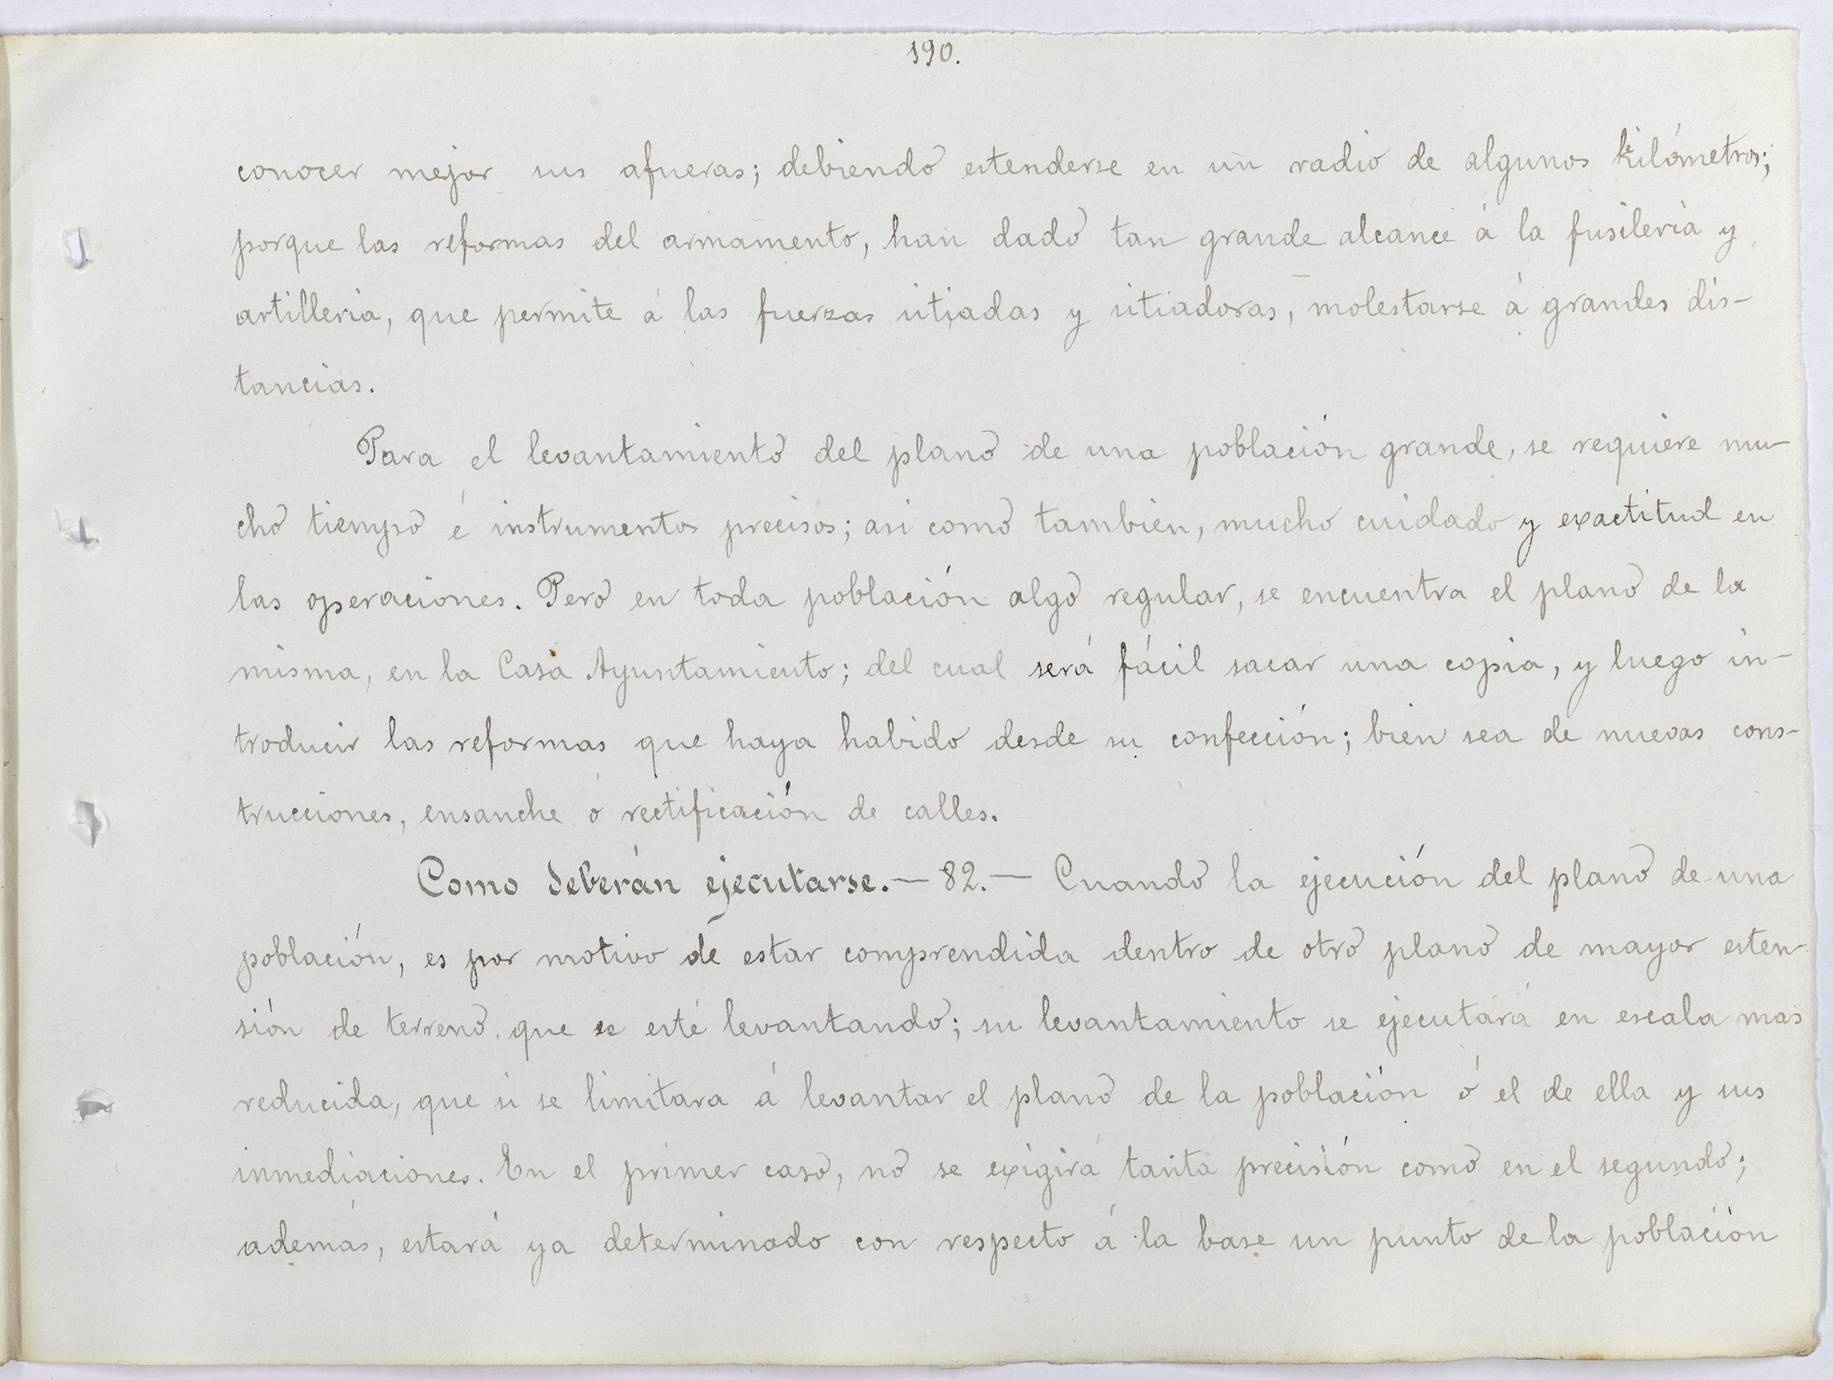 190.
conocer mejor sus afueras; debiendo estenderse en un radio de algunos kilómetros;
porque las reformas del armamento, han dado tan grande alcance á la fusileria y
artilleria, que permite á las fuerzas sitiadas y sitiadoras, molestarse á grandes dis-
tancias.
Para el levantamiento del plano de una población grande, se requiere mu-
cho tiempo é instrumentos precisos; asi como tambien, mucho cuidado y exactitud en
las operaciones. Pero en toda población algo regular, se encuentra el plano de la
misma, en la Casa Ayuntamiento; del cual será fácil sacar una copia, y luego in-
troducir las reformas que haya habido desde su confección; bien sea de nuevas cons-
trucciones, ensanche ó rectificación de calles.
Como deberán ejecutarse.— 82.— Cuando la ejecución del plano de una
población, es por motivo de estar comprendida dentro de otro plano de mayor esten-
sión de terreno que se esté levantando; su levantamiento se ejecutará en escala mas
reducida, que si se limitara á levantar el plano de la población ó el de ella y sus
inmediaciones. En el primer caso, no se exigirá tanta precisión como en el segundo;
además, estará ya determinado con respecto á la base un punto de la población